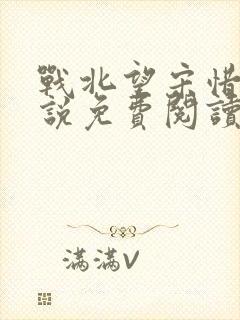 戰北望宋惜
說免費閱讀
滿滿V